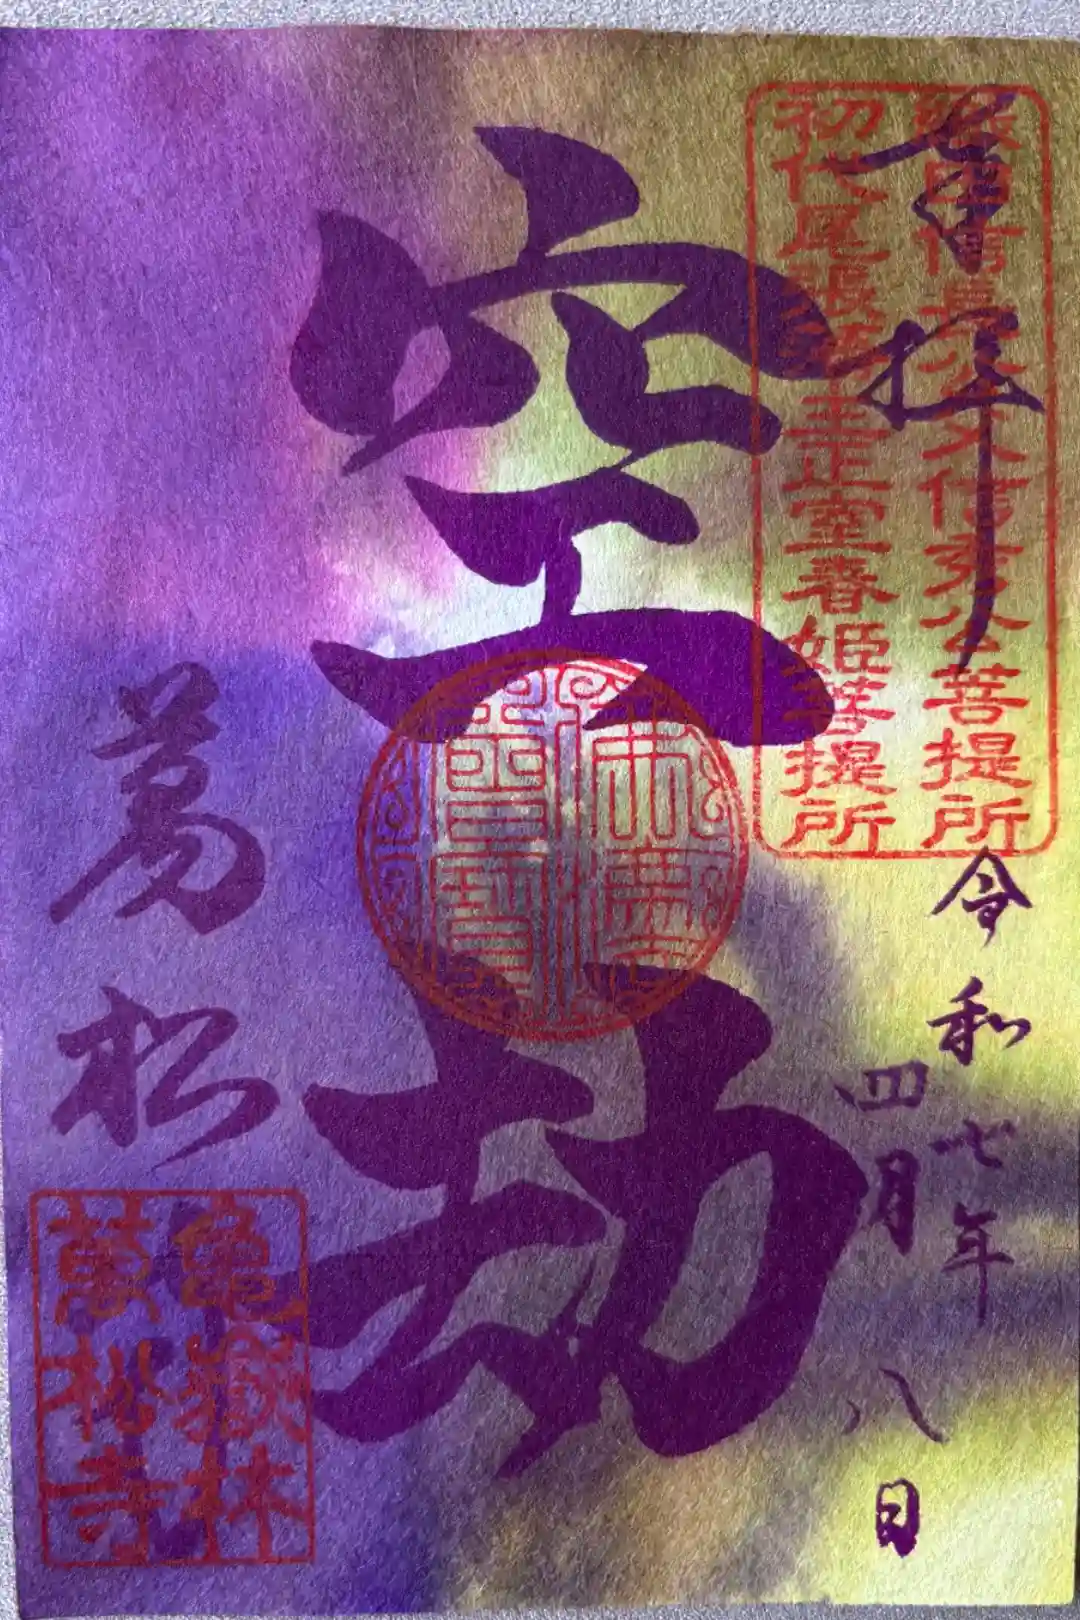 奉拝
織田信長公父信秀公菩提所
初代尾張藩主正室春姫菩提所
令和七年
四月八日
空劫
萬松寺
亀嶽林
萬松寺